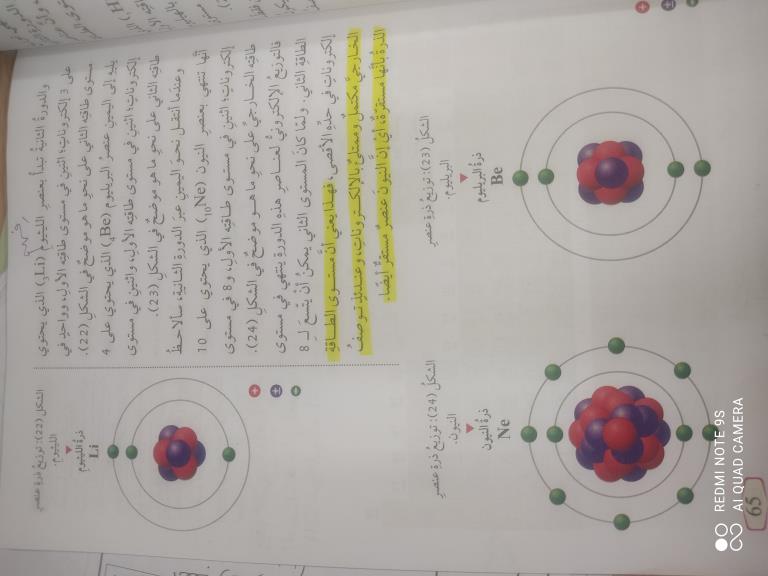 والدورةُ الثانيةُ تبدأُ بعنصرِ الليثيومِ (₃Li) الذي يحتوي
على 3 إلكتروناتٍ؛ اثنينِ في مستوى طاقتِهِ الأولِ، وواحدٍ في
مستوى طاقتِهِ الثاني على نحوِ ما هو موضحٌ في الشكلِ (22).
يليهِ إلى اليمينِ عنصرُ البريليومِ (₄Be) الذي يحتوي على 4
إلكتروناتٍ؛ اثنينِ في مستوى طاقتِهِ الأولِ، واثنينِ في مستوى
طاقتِهِ الثاني على نحوِ ما هو موضحٌ في الشكلِ (23).
وعندَما أنتقلُ نحوَ اليمينِ عبرَ الدورةِ الثانيةِ، سألاحظُ
أنَّها تنتهي بعنصرِ النيونِ (₁₀Ne) الذي يحتوي على 10
إلكتروناتٍ؛ اثنينِ في مستوى طاقتِهِ الأولِ، و 8 في مستوى
طاقتِهِ الخارجيِّ على نحوِ ما هو موضحٌ في الشكلِ (24).
فالتوزيعُ الإلكترونيُّ لعناصرِ هذهِ الدورةِ ينتهي في مستوى
الطاقةِ الثاني. ولمّا كانَ المستوى الثاني يمكنُ أنْ يتّسعَ لـِ 8
إلكتروناتٍ في حدِّهِ الأقصى، فهذا يعني أنَّ مستوى الطاقةِ
الخارجيَّ مكتملٌ وممتلئٌ بالإلكتروناتِ، وعندئذٍ توصفُ
الذرةُ بأنَّها مستقرةٌ، أيْ إنَّ النيونَ عنصرٌ مستقرٌّ أيضًا.
الشكلُ (22): توزيعُ ذرةِ عنصرِ
الليثيومِ.
ذرةُ الليثيومِ
Li
الشكلُ (23): توزيعُ ذرةِ عنصرِ
البريليومِ.
ذرةُ البريليومِ
Be
الشكلُ (24): توزيعُ ذرةِ عنصرِ
النيونِ.
ذرةُ النيونِ
Ne
65
REDMI NOTE 9S
AI QUAD CAMERA